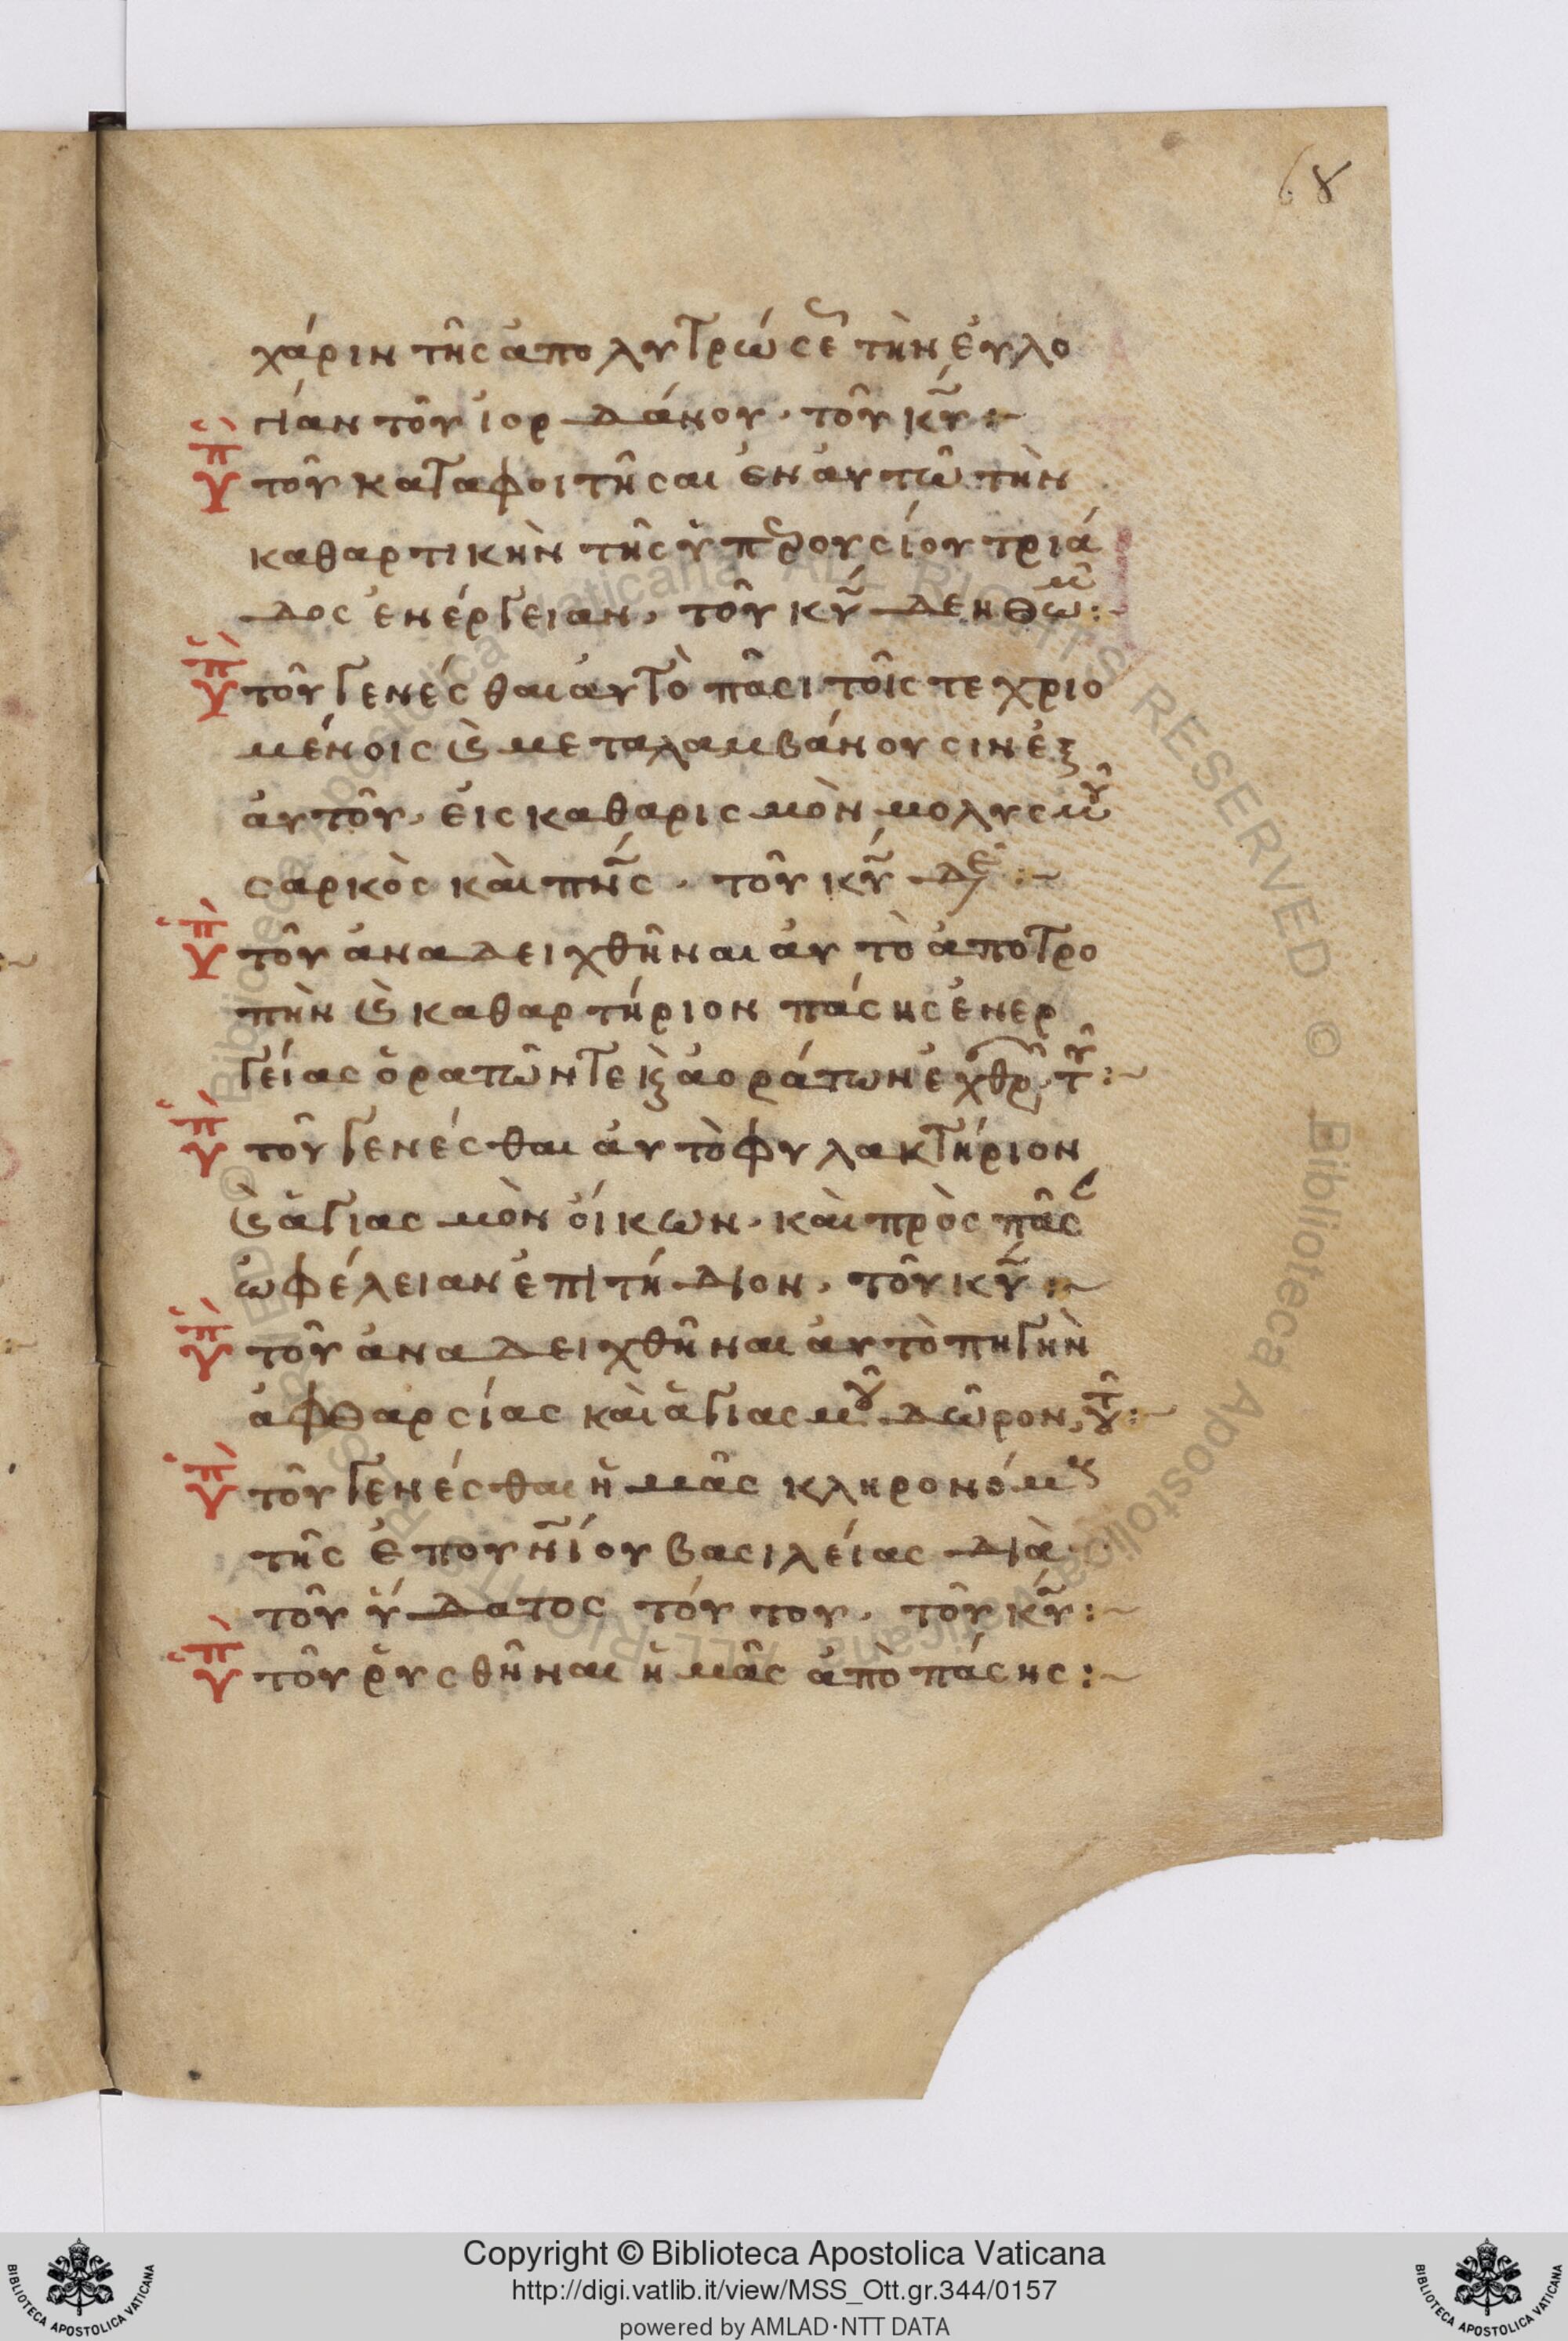 68
χάριν τῆς ἀπολυτρώσε τὴν ἐυλο
γίαν τοῦ ἰορδάνου· τοῦ κ̅υ̅:~
ὑπ τοῦ καταφοιτῆσαι ἐν ἀυτῶ τὴν
καθαρτικὴν τῆς ὑπερουσίου τριά
δος ἐνέργειαν, τοῦ κ̅υ̅ δεηθῶμ:~
ὑπ τοῦ γενέσθαι ἀυτὸ πᾶσι τοῖς τε χριο
μένοις ϗ μεταλαμβάνουσιν ἐξ
ἀυτοῦ, ἐις καθαρισμὸν μολυσμοῦ
σαρκὸς καὶ π̅ν̅ς, τοῦ κ̅υ̅ δε:~
ὑπ τοῦ ἀναδειχθῆναι ἀυτὸ ἀποτρο
πὴν ϗ καθαρτήριον πάσης ἐνερ
γείας ὁρατῶν τε ϗ ἀοράτων ἐχθρ, τοῦ:~
ὑπ τοῦ γενέσθαι ἀυτὸ φυλακτήριον
ϗ ἁγιασμὸν ὀίκων, καὶ πρὸς πᾶσ
ὠφέλειαν ἐπιτήδιον, τοῦ κ̅υ̅:~
ὑπ τοῦ ἀναδειχθῆναι ἀυτὸ πηγὴν
ἀφθαρσίας καὶ ἁγιασμοῦ δῶρον, τοῦ:~
ὑπ τοῦ γενέσθαι ἡμᾶς κληρονόμς
τῆς ἐπουν̅ίου βασιλείας διὰ
τοῦ ὕδατος τόυτου, τοῦ κ̅υ̅:~
ὑπ τοῦ ῥυσθῆναι ἡμᾶς ἀπὸ πάσης:~
Copyright © Biblioteca Apostolica Vaticana
http://digi.vatlib.it/view/MSS_Ott.gr.344/0157
powered by AMLAD·NTT DATA
BIBLIOTECA APOSTOLICA VATICANA
BIBLIOTECA APOSTOLICA VATICANA